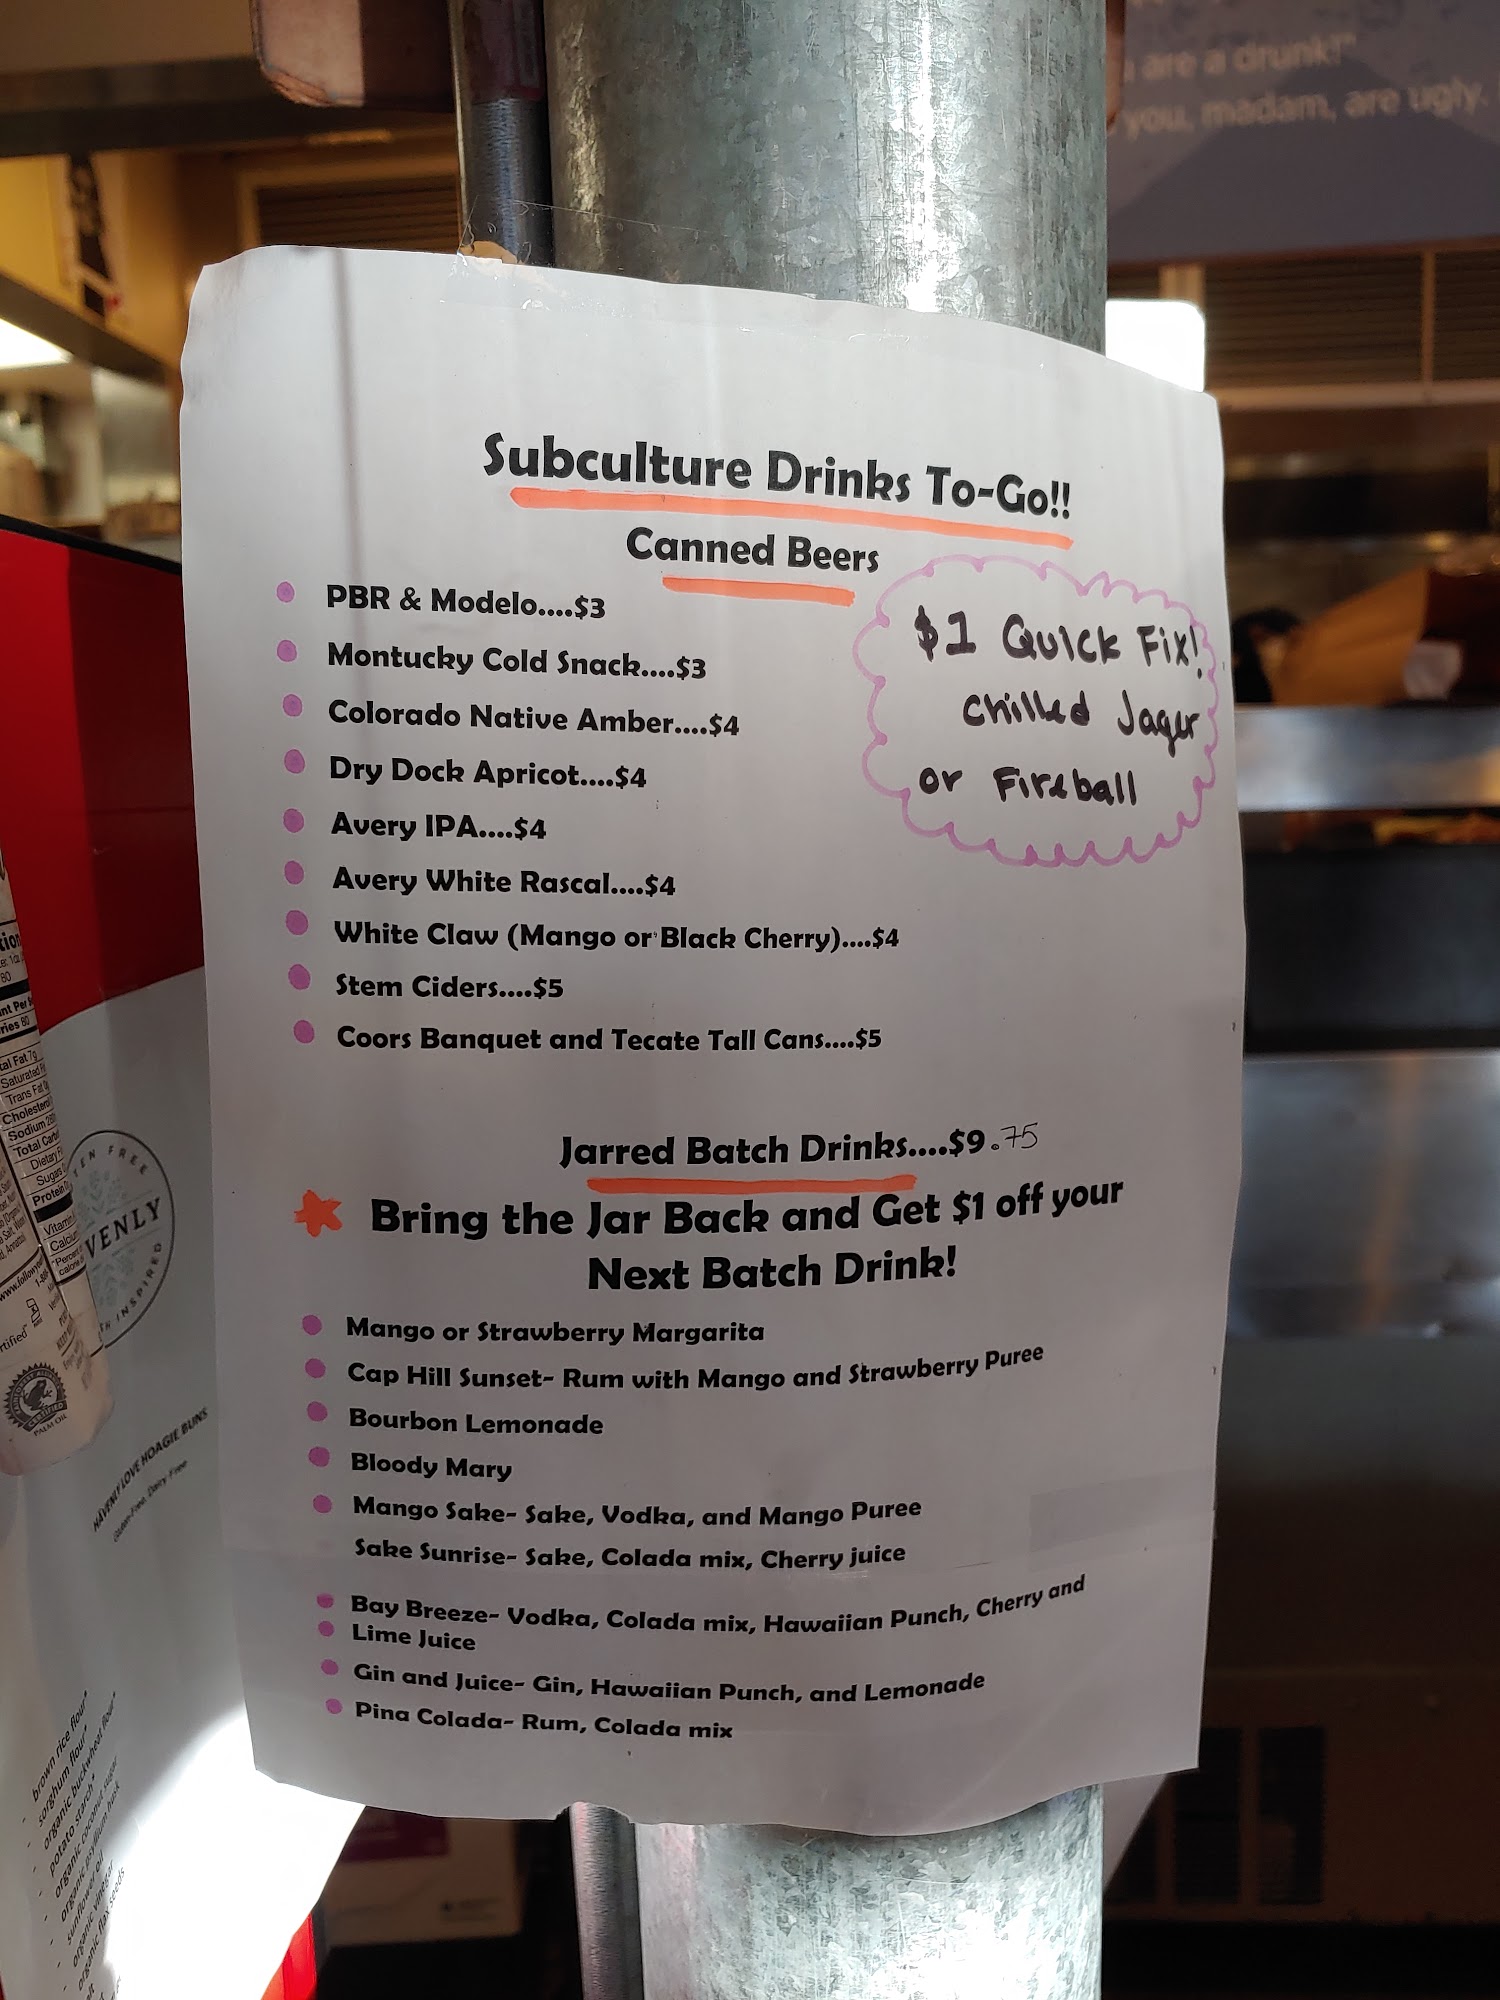 are a drunk!"
you, madam, are ugly.
Subculture Drinks To-Go!!
Canned Beers
PBR & Modelo....$3
Montucky Cold Snack....$3
Colorado Native Amber....$4
Dry Dock Apricot....$4
Avery IPA....$4
Avery White Rascal....$4
White Claw (Mango or Black Cherry)....$4
Stem Ciders....$5
Coors Banquet and Tecate Tall Cans....$5
$1 Quick Fix!
Chilled Jager
or Fireball
Jarred Batch Drinks....$9.75
Bring the Jar Back and Get $1 off your
Next Batch Drink!
Mango or Strawberry Margarita
Cap Hill Sunset- Rum with Mango and Strawberry Puree
Bourbon Lemonade
Bloody Mary
Mango Sake- Sake, Vodka, and Mango Puree
Sake Sunrise- Sake, Colada mix, Cherry juice
Bay Breeze- Vodka, Colada mix, Hawaiian Punch, Cherry and
Lime Juice
Gin and Juice- Gin, Hawaiian Punch, and Lemonade
Pina Colada- Rum, Colada mix
VENLY
INSPIRED
HAVENLY LOVE HOAGIE BUNS
Gluten-Free, Dairy-Free
- brown rice flour*
- sorghum flour*
- organic buckwheat flour*
- potato starch*
- organic coconut sugar
- organic psyllium husk
- sunflower oil
- organic vinegar
- organic flax seeds
CERTIFIED
PALM OIL